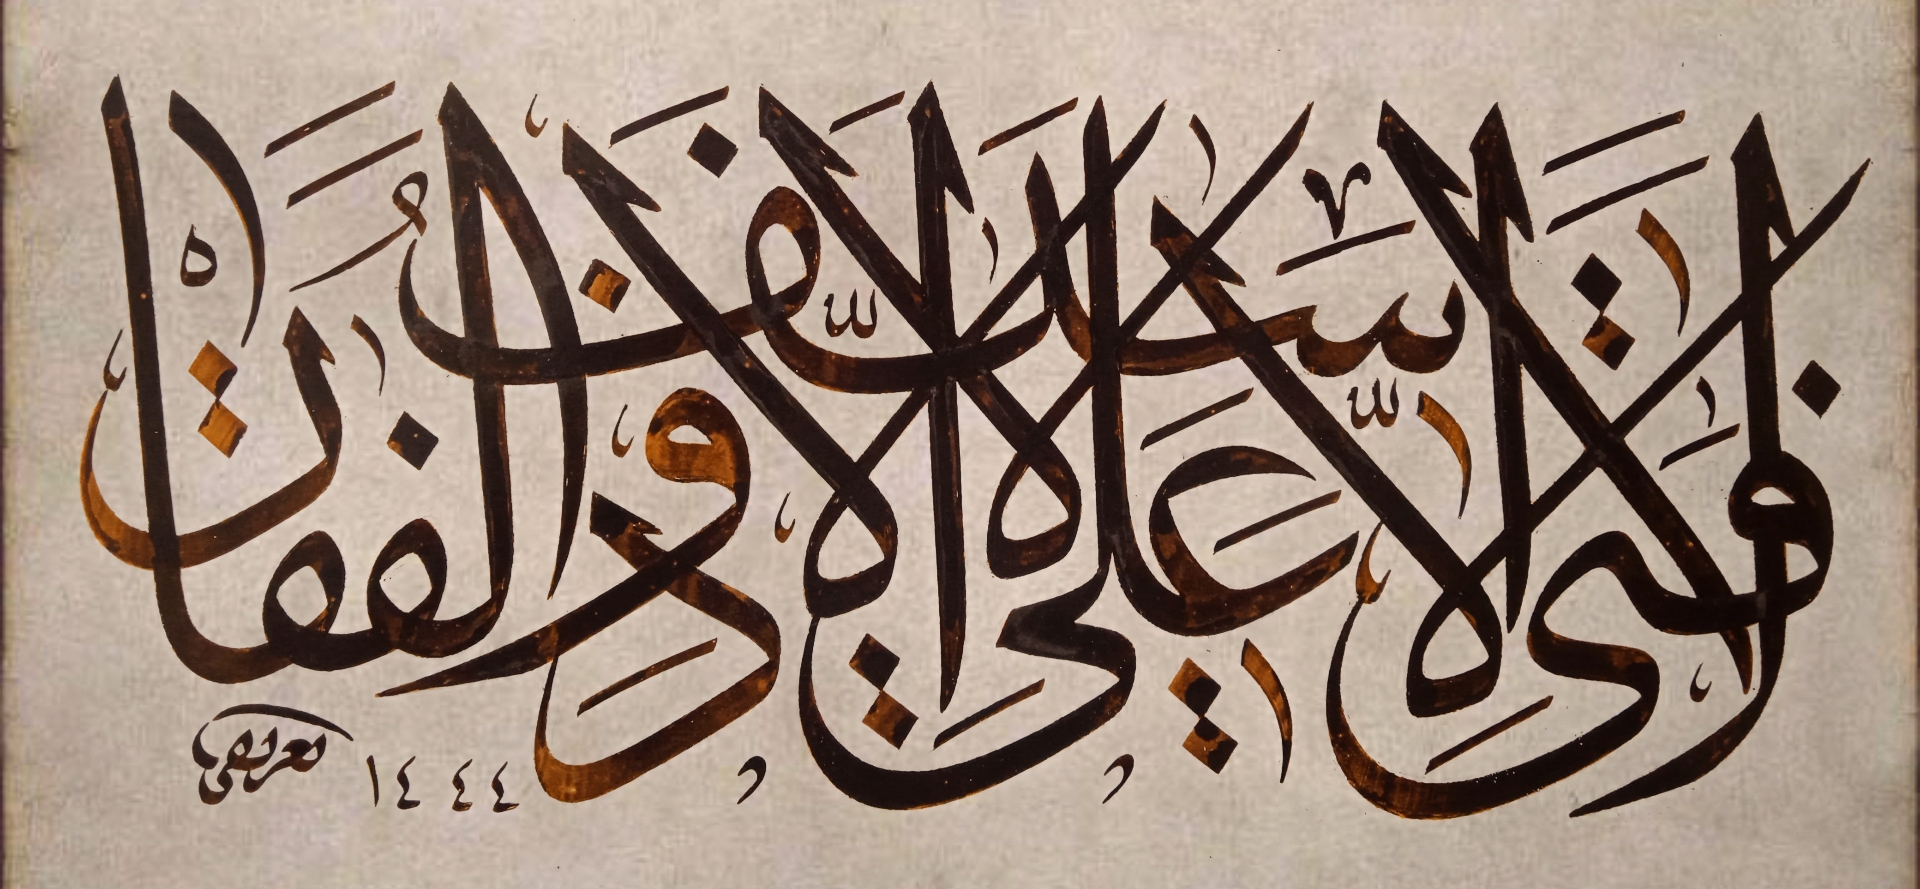 لا فتى إلا علي لا سيف إلا ذو الفقار
١٤٤٤